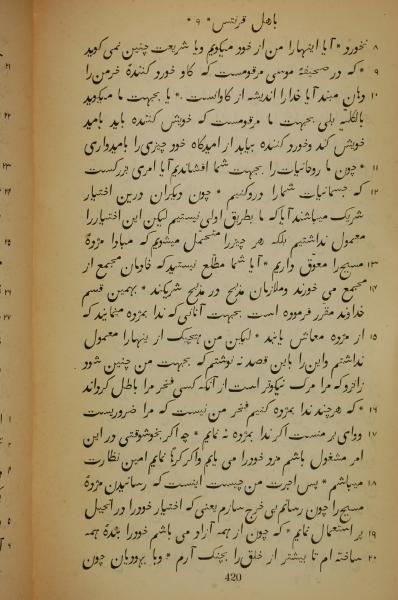 باهل قرنتس * ۹ *
۸ نخورد * آیا اینها را من از خود میگویم ویا شریعت چنین نمی گوید
۹ * که در صحیفهٔ موسی مرقومست که گاو خورد کنندهٔ خرمن را
۱۰ دهان مبند آیا خدا را اندیشه از گاوانست * یا بجهت ما میگوید
بالکلیّه بلی بجهت ما مرقومست که خویش کننده باید بامید
خویش کند وخورد کننده بباید از امیدگاه خود چیزی را بامیدواری
۱۱ * چون ما روحانیات را بجهت شما افشاندیم آیا امری بزرگست
۱۲ که جسمانیات شما را درو کنیم * چون دیگران درین اختیار
شریک میباشند آیا که ما بطریق اولی نیستیم لیکن این اختیار را
معمول نداشتیم بلکه هر چیز را متحمل میشویم که مبادا مژدهٔ
۱۳ مسیح را معوّق داریم * آیا شما مطّلع نیستید که خادمان مجمع از
۱۴ مجمع می خورند وملازمان مذبح در مذبح شریکند * بهمین قسم
خداوند مقرّر فرموده است بجهت آنانی که ندا بمژده مینمایند که
۱۵ از مژده معاش یابند * لیکن من هیچیک از ینها را معمول
نداشتم واین را باین قصد نه نوشتم که بجهت من چنین شود
زانرو که مرا مرگ نیکوتر است از آنکه کسی فخر مرا باطل گرداند
۱۶ * که هرچند ندا بمژده کنیم فخر من نیست که مرا ضروریست
۱۷ ووای بر منست اگر ندا بمژده نه نمایم * چه اگر بخوشوقتی در این
امر مشغول باشم مزد خود را می یابم واگر کرهًا نمایم امین نظارت
۱۸ میباشم * پس اجرت من چیست اینست که رسانیدن مژدهٔ
مسیح را چون رسانم بی خرج سازم یعنی که اختیار خود را در انجیل
۱۹ پر استعمال ننمایم * که چون از همه آزاد می باشم خود را بندهٔ همه
۲۰ ساخته ام تا بیشتر از خلق را بچنگ آرم * وبا یهودیان چون
420